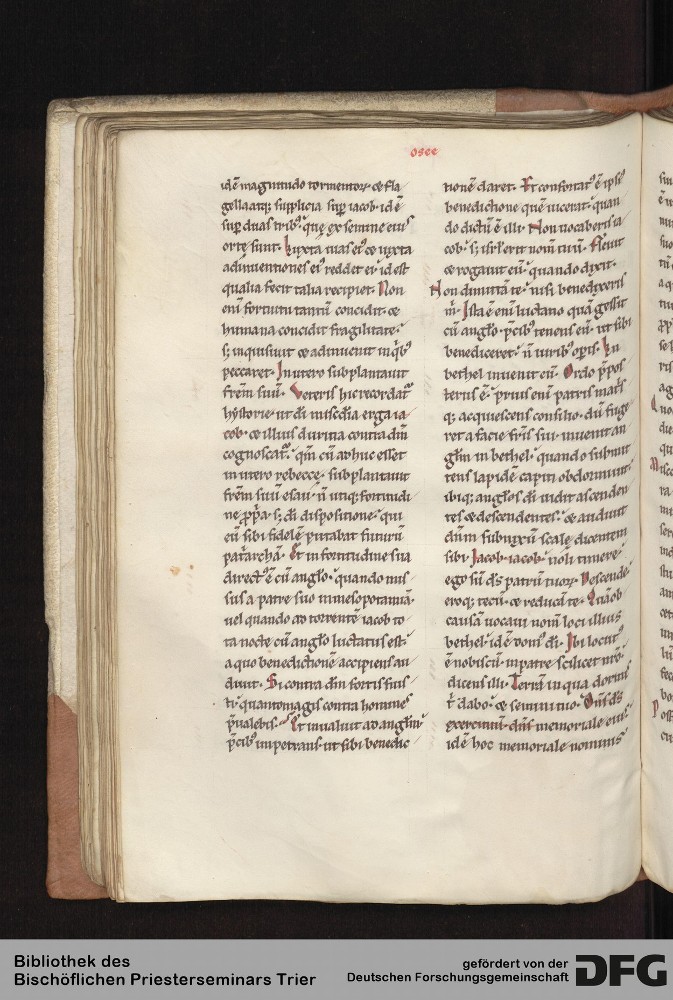 osee
idē magnitudo tormentoꝝ ⁊ fla
gella atq; supplicia sup iacob· id ē
sup duas tribꝰ· que ex semine eiꝰ
orte sunt· Iuxta uias eiꝰ ⁊ iuxta
adinuentiones eiꝰ reddet ei· id est
qualia fecit talia recipiet· Non
enī fortuitu tantū concidit· ⁊
humana concidit fragilitate·
s; inquisiuit ⁊ adinuenit in qͥbꝰ
peccaret· In utero subplantauit
frēm suū· Veteris hic recordatͬ
hystorie· ut dī miscdīa erga ia
cob· ⁊ illius duritia contra dm̄
cognoscatͬ· qm̄ cū adhuc esset
in utero rebecce· subplantauit
frēm suū esau· n̄ utiq; fortitudi
ne ꝓpͥa· s; dī dispositione· qui
eū sibi fidelē putabat futurū
patͥarchā· Et in fortitudine sua
directꝰ ē cū anglo· quando mis
sus a patre suo in mesopotamiā·
uel quando ad torrentē iacob to
ta nocte cū anglo luctatus est·
a quo benedictionē accipiens au
diuit· Si contra dm̄ fortis fuis
ti· quanto magis contra homines
pͤualebis· Et inualuit ad anglm̄·
pͤcibꝰ impetrans· ut sibi benedic
tionē daret· Et confortatꝰ ē ipse
benedictione quē uicerat· quan
do dictū ē illi· Non uocaberis ia
cob· s; isrl erit nom̄ tuū· Fleuit
⁊ rogauit eū· quando dixit·
Non dimittā te· nisi benedixeris
m̄· Ista ē enī luctatio quā gessit
cū anglo· pͤcibꝰ tenens eū· ut sibi
benediceret· n̄ uiribꝰ opͤris· In
bethel inuenit eū· Ordo pͤpos
terus ē· prius enī patris matͥs
q; acquiescens consilio· dū fuge
ret a facie frīs sui· inuenit an
glm̄ in bethel· quando submit
tens lapidē capiti obdormiuit·
ibiq; anglos dī uidit ascenden
tes ⁊ descendentes· ⁊ audiuit
dn̄m subnixū scale dicentem
sibi· Iacob iacob· noli timere·
ego sū dꝰs patrū tuoꝝ· Descende
eroq; tecū· ⁊ reducā te· Quāob
causā uocaui nom̄ loci illius
bethel· id ē domꝰ dī· Ibi locutꝰ
ē nobiscū· in patre scilicet nr̄o·
dicens illi· Terrā in qua dormis
t̄ dabo· ⁊ semini tuo· Dn̄s dꝰs
exercituū· dn̄s memoriale eius·
id ē hoc memoriale nominis
Bibliothek des
Bischöflichen Priesterseminars Trier
gefördert von der
Deutschen Forschungsgemeinschaft
DFG